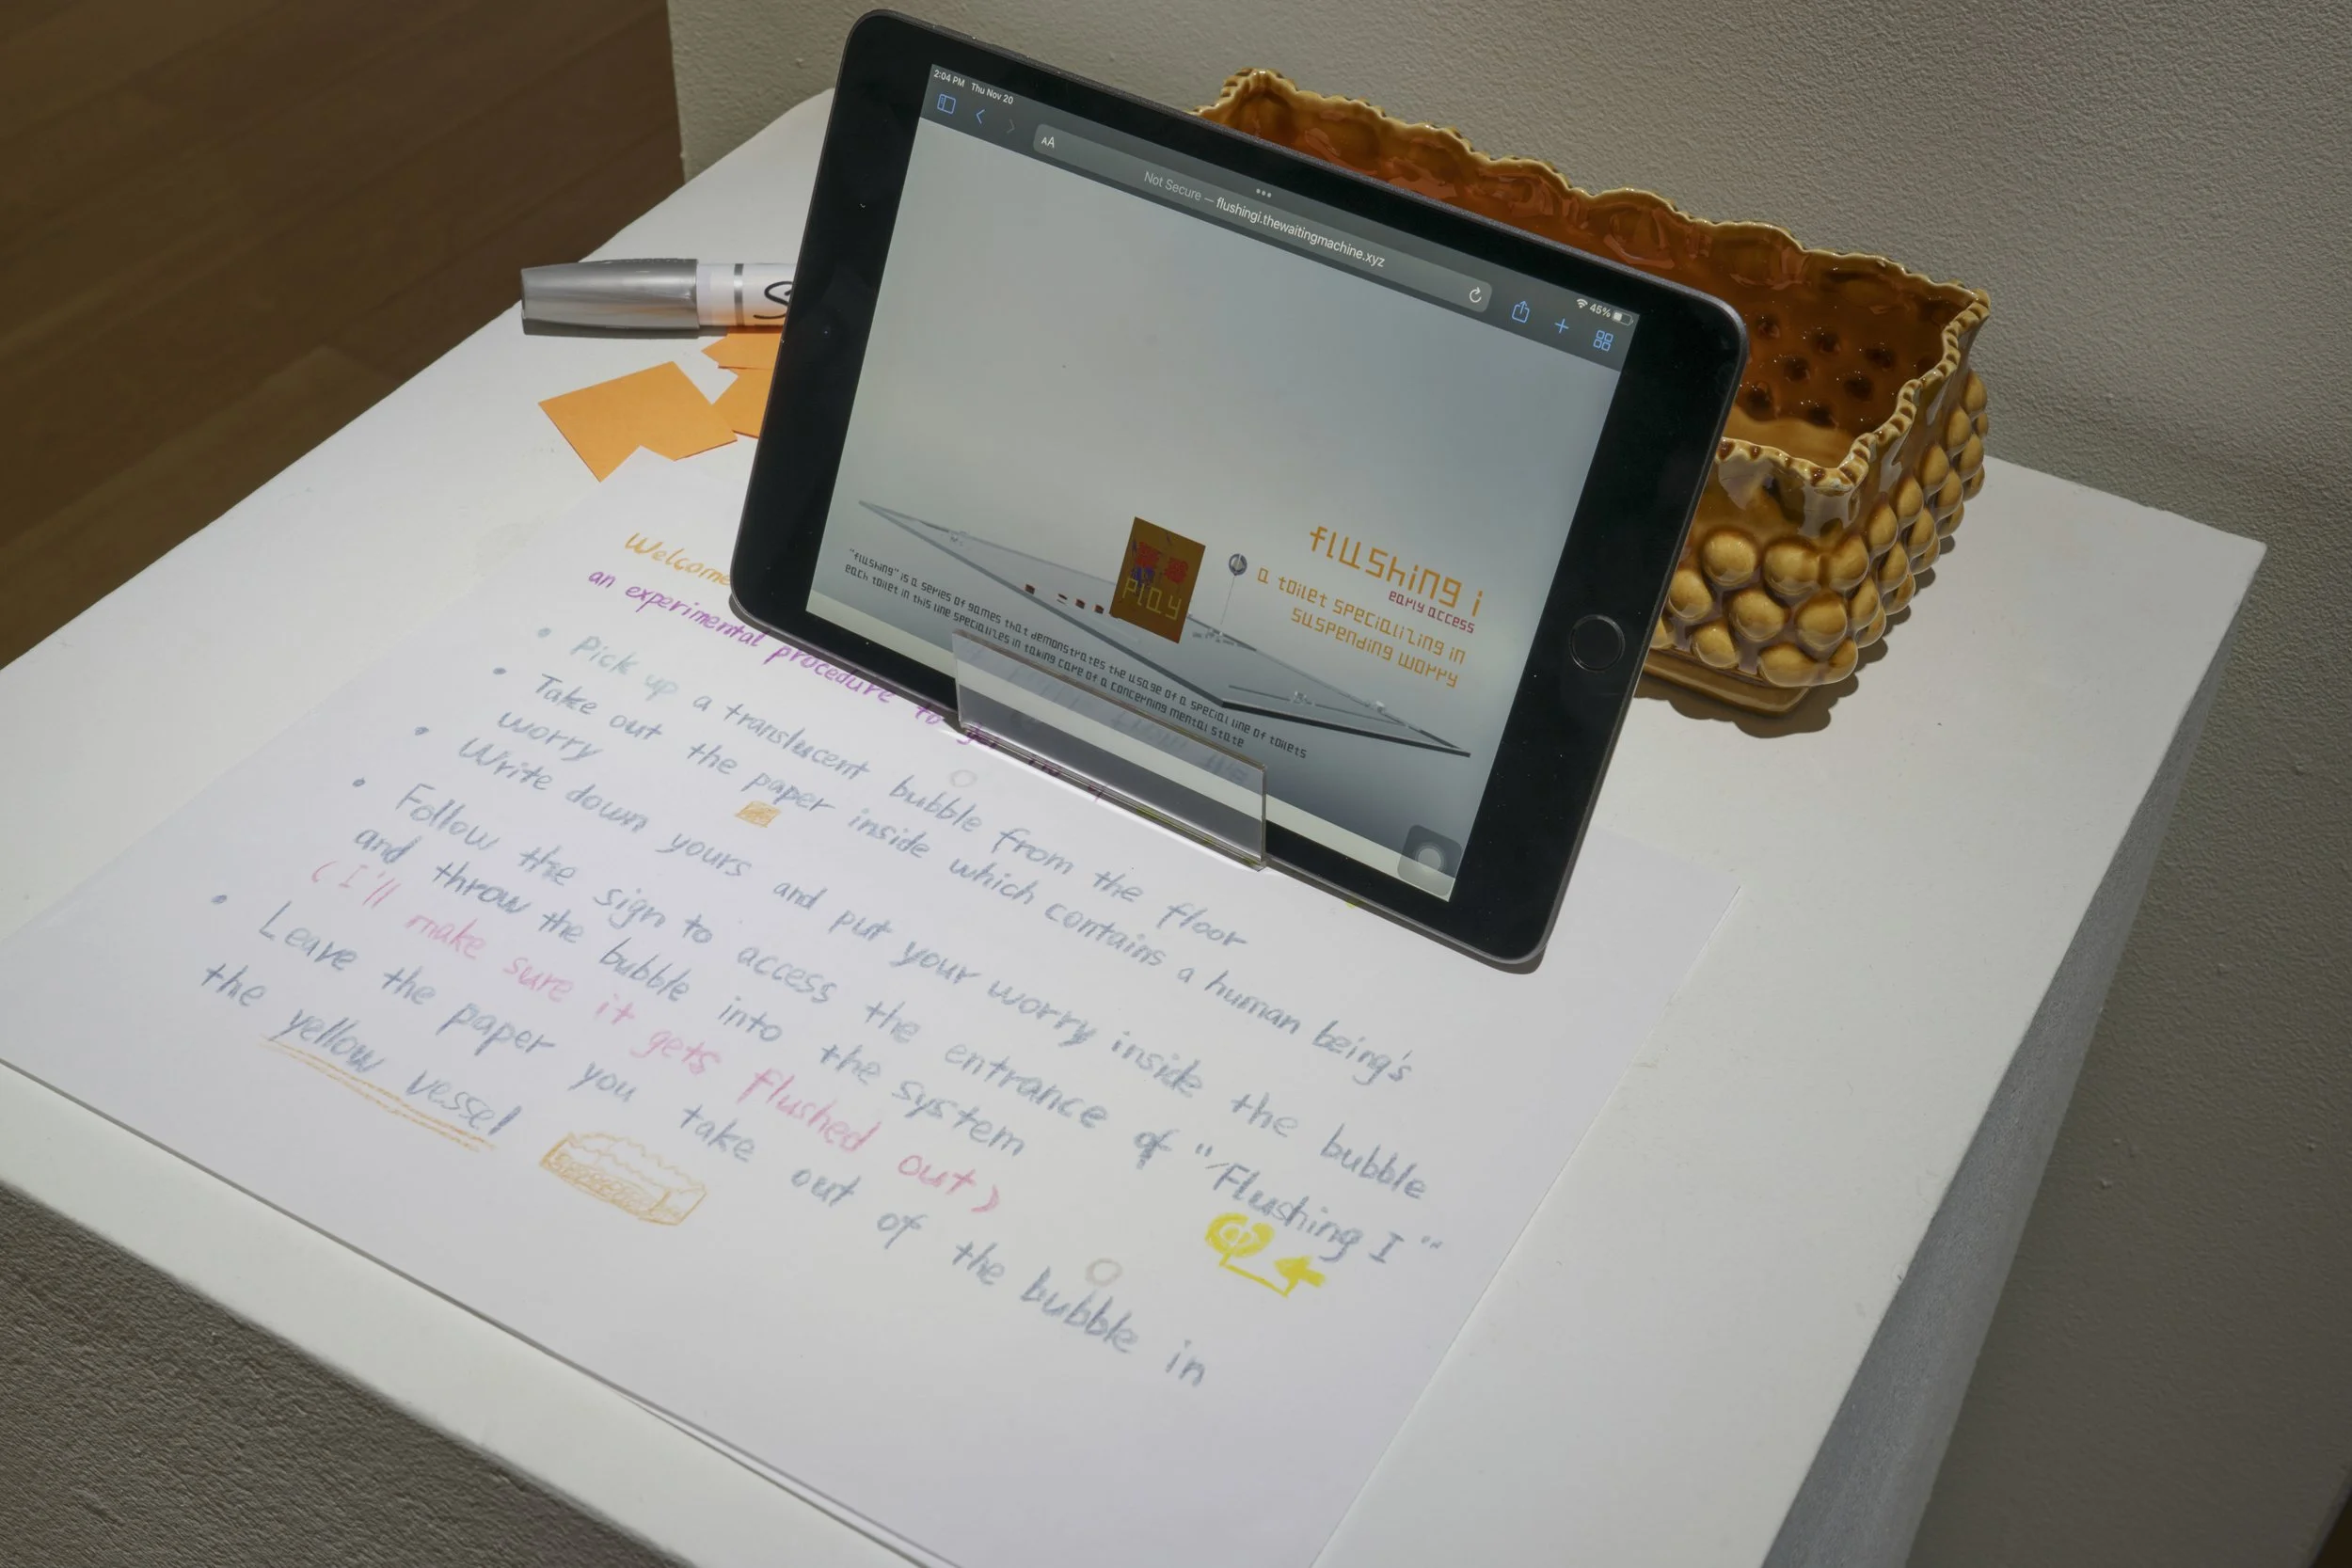 2:04 PM Thu Nov 20
AA
Not Secure — flushingi.thewaitingmachine.xyz
45%
flushing i
early access
a toilet specializing in
suspending worry
play
"flushing" is a series of games that demonstrates the usage of a special line of toilets
each toilet in this line specializes in taking care of a concerning mental state
S
Welcome
an experimental procedure to
• Pick up a translucent bubble from the floor
• Take out the paper inside which contains a human being's
worry
• Write down yours and put your worry inside the bubble
• Follow the sign to access the entrance of "Flushing I"
and throw the bubble into the system
(I'll make sure it gets flushed out)
• Leave the paper you take out of the bubble in
the yellow vessel